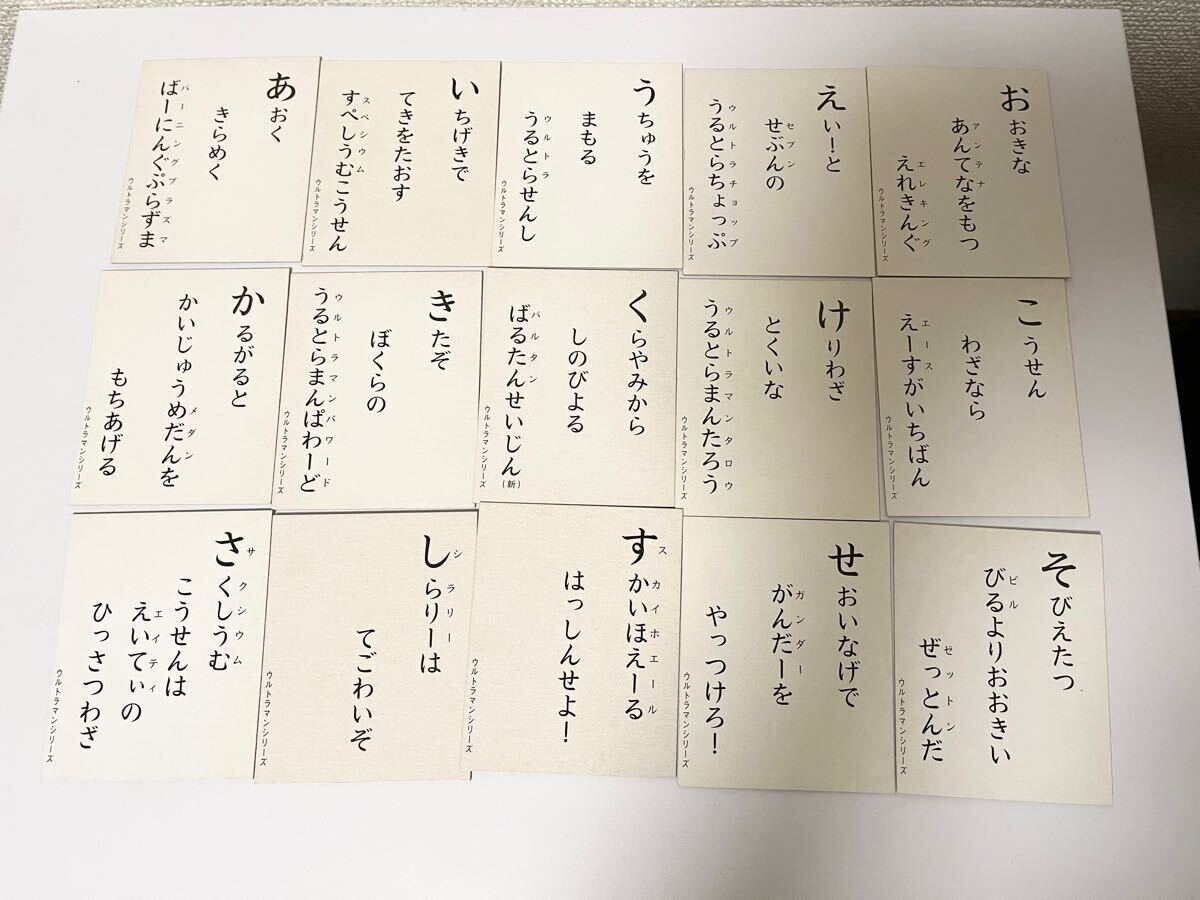 あおく
きらめく
バーニングプラズマ
ばーにんぐぷらずま
ウルトラマンシリーズ
いちげきで
てきをたおす
スペシウム
すぺしうむこうせん
ウルトラマンシリーズ
うちゅうを
まもる
ウルトラ
うるとらせんし
ウルトラマンシリーズ
えい！と
セブン
せぶんの
ウルトラチョップ
うるとらちょっぷ
ウルトラマンシリーズ
おおきな
アンテナ
あんてなをもつ
エレキング
えれきんぐ
ウルトラマンシリーズ
かるがると
メダン
かいじゅうめだんを
もちあげる
ウルトラマンシリーズ
きたぞ
ぼくらの
ウルトラマンパワード
うるとらまんぱわーど
ウルトラマンシリーズ
くらやみから
しのびよる
バルタン
ばるたんせいじん(新)
ウルトラマンシリーズ
けりわざ
とくいな
ウルトラマンタロウ
うるとらまんたろう
ウルトラマンシリーズ
こうせん
わざなら
エース
えーすがいちばん
ウルトラマンシリーズ
サクシウム
さくしうむ
こうせんは
エイティ
えいてぃの
ひっさつわざ
ウルトラマンシリーズ
シラリー
しらりーは
てごわいぞ
ウルトラマンシリーズ
スカイホエール
すかいほえーる
はっしんせよ！
ウルトラマンシリーズ
せおいなげで
ガンダー
がんだーを
やっつけろ！
ウルトラマンシリーズ
そびえたつ
ビル
びるよりおおきい
ゼットン
ぜっとんだ
ウルトラマンシリーズ